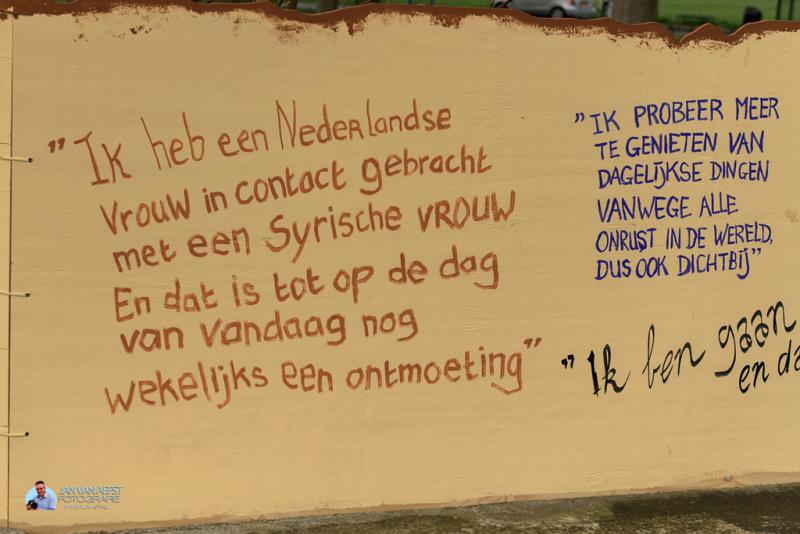 "Ik heb een Nederlandse
vrouw in contact gebracht
met een Syrische VROUW
En dat is tot op de dag
van vandaag nog
wekelijks een ontmoeting"
"IK PROBEER MEER
TE GENIETEN VAN
DAGELIJKSE DINGEN
VANWEGE ALLE
ONRUST IN DE WERELD,
DUS OOK DICHTBIJ"
"Ik ben gaan
en da
JAN VAN AERST
FOTOGRAFIE